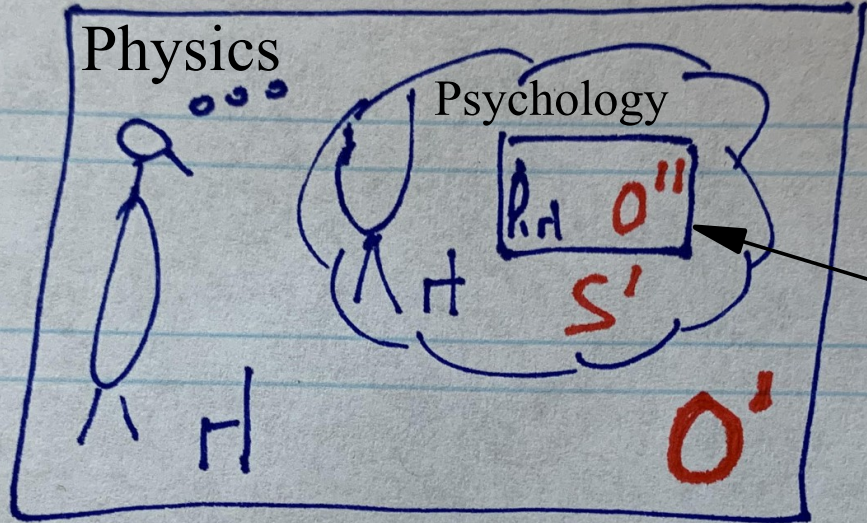 Physics
Psychology
O"
S'
O'